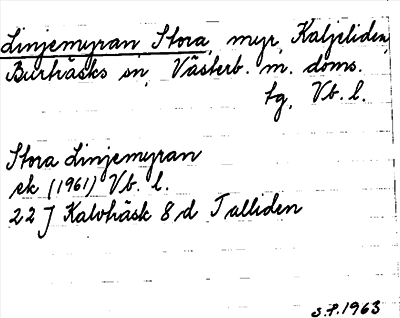 Linjemyran Stora, myr, Kaljeliden,
Burträsks sn, Västerb. m. doms.
tg, Vb. l.
Stora Linjemyran
ek (1961) Vb. l.
22 J Kalvträsk 8 d Tulliden
S.F. 1963